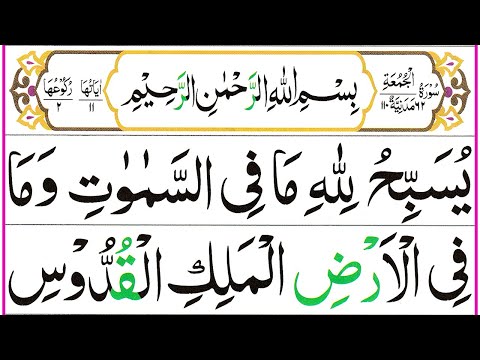 سُوْرَةُ الْجُمُعَةِ ٦٢ مَدَنِيَّةٌ ١١٠
بِسْمِ اللّٰهِ الرَّحْمٰنِ الرَّحِيْمِ
اٰيَاتُهَا ١١ رُكُوْعُهَا ٢
يُسَبِّحُ لِلّٰهِ مَا فِى السَّمٰوٰتِ وَمَا
فِى الْاَرْضِ الْمَلِكِ الْقُدُّوْسِ